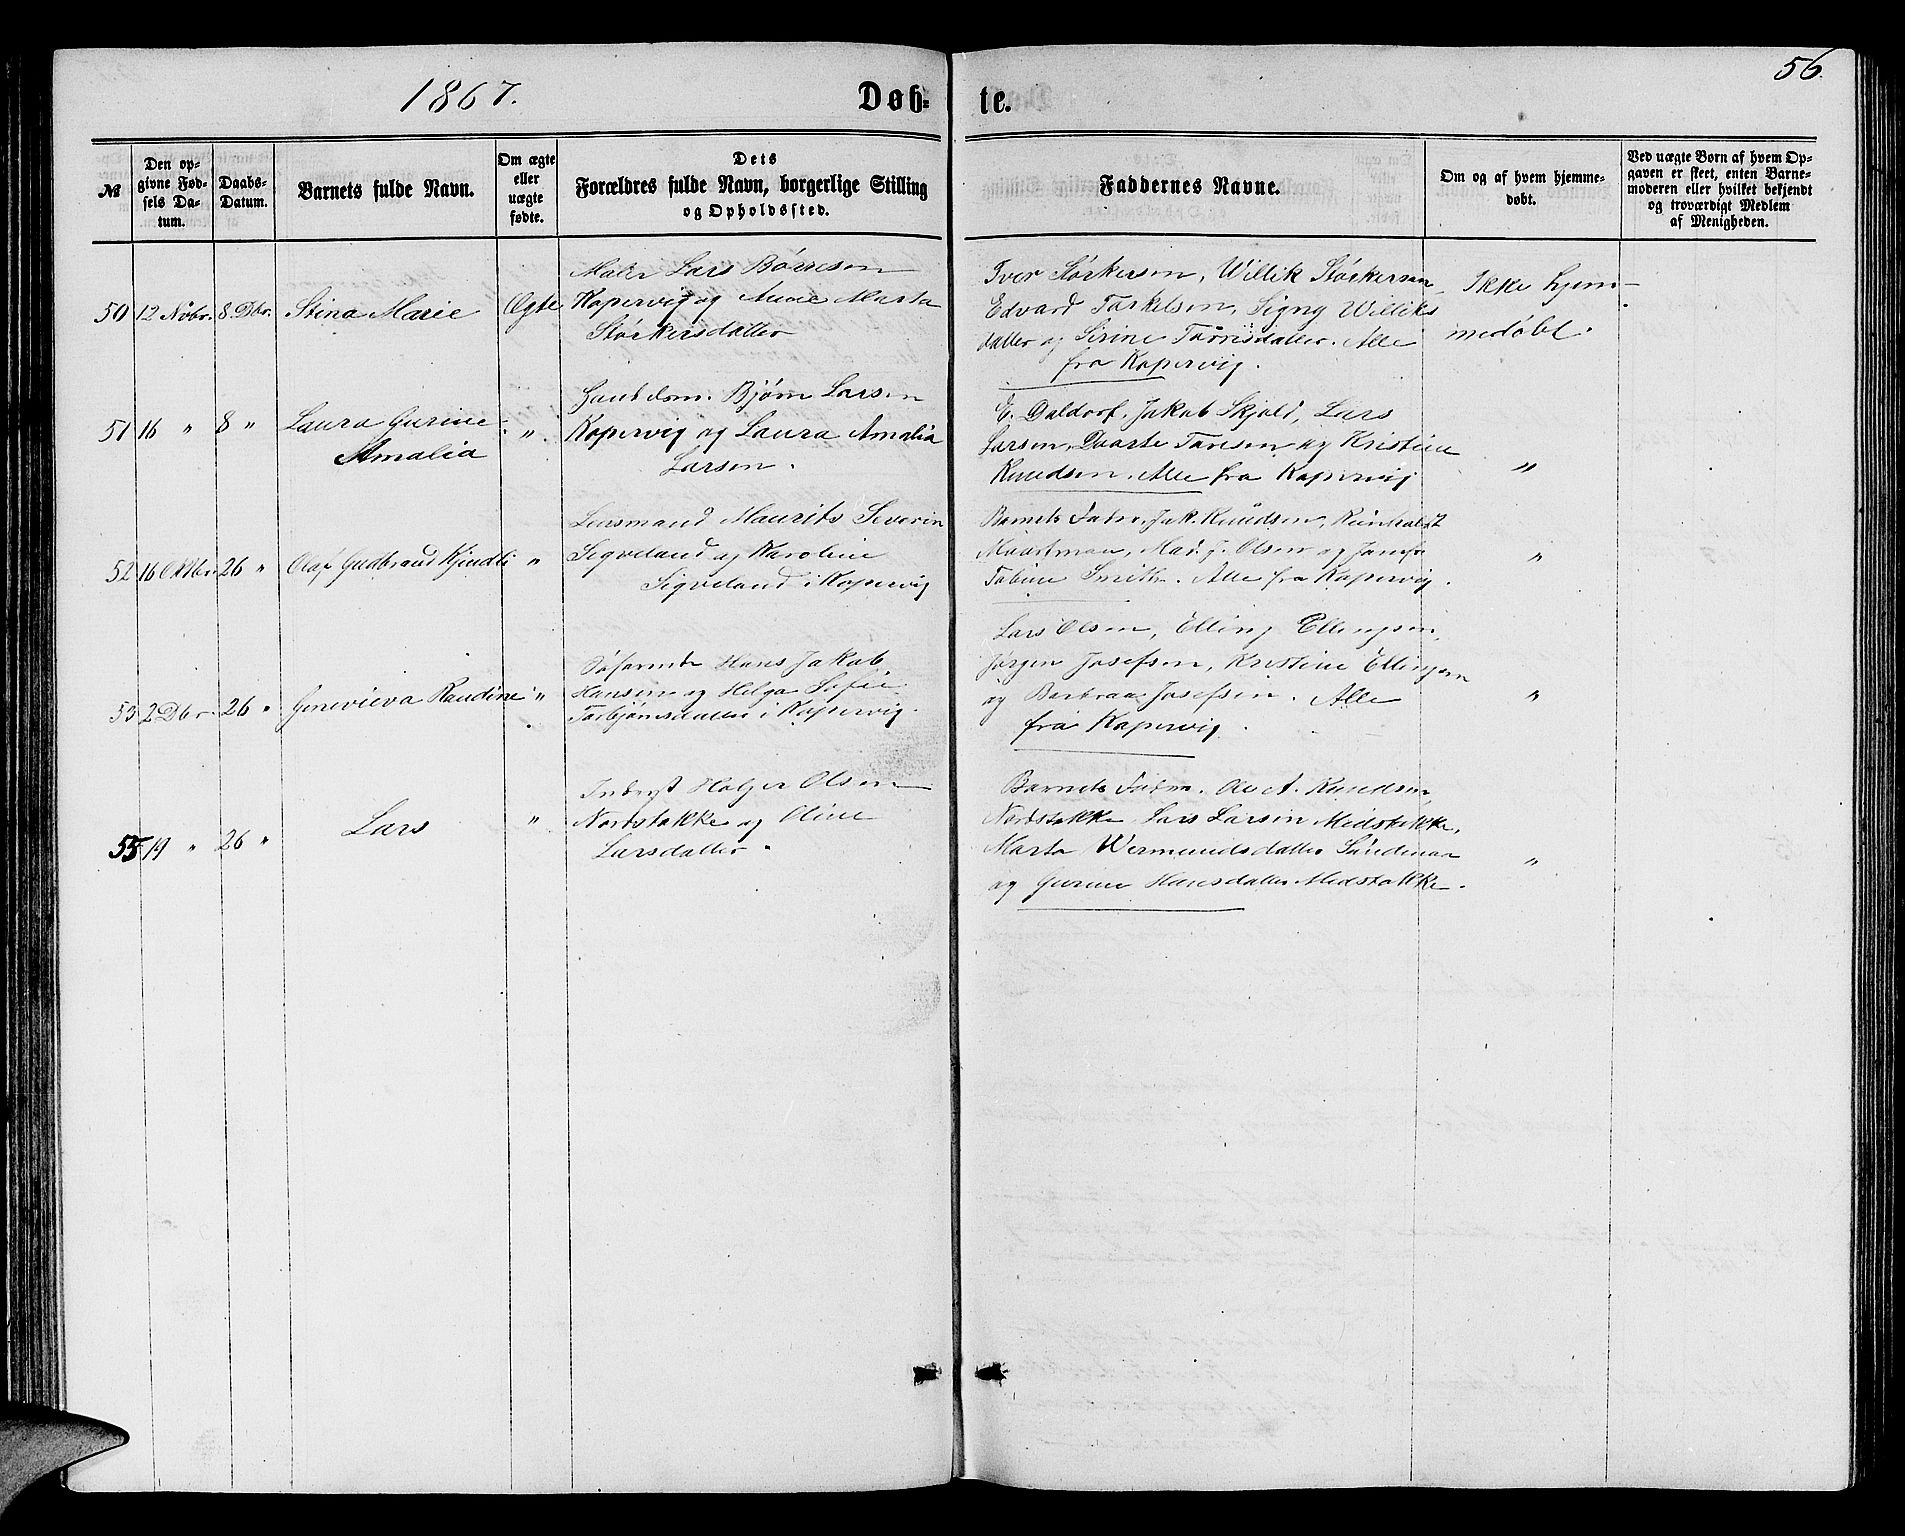 56.
1867.
Døb-
te.
№
Den op-
givne Fød-
sels Da-
tum.
Daabs-
Datum.
Barnets fulde Navn.
Om ægte
eller
uægte
fødte.
Dets
Forældres fulde Navn, borgerlige Stilling
og Opholdssted.
Faddernes Navne.
Om og af hvem hjemme-
døbt.
Ved uægte Børn af hvem Op-
gaven er skeet, enten Barne-
moderen eller hvilket bekjendt
og troværdigt Medlem
af Menigheden.
50 12 Novbr. 8 Dbr. Stina Marie Ægte
Maler Lars Børresen
Kopervig og Anne Marta
Størkersdatter
Iver Størkersen, Willik Størkersen
Edvard Tarkelsen, Signy Williks
datter og Sirine Tørrisdatter. Alle
fra Kopervig.
Ikke hjem-
medøbt.
51 16 " 8 " Laura Gurine
Amalia
"
Bjørn Larsen
Kopervig og Laura Amalia
Larsen.
E. Daldorf, Jakob Skjold, Lars
Larsen, og Kristine
Knudsen. Alle fra Kopervig
"
52 16 Oktbr. 26 " Olaf Gudbrand "
Maurits Severin
Sigveland og Karoline
Sigveland i Kopervig
Barnets Fader, Jak. Knudsen,
Olsen og
Tobine Smith. Alle fra Kopervig.
"
53 2 Dbr. 26 " Genevieva Randine "
Søfarende Hans Jakob
Hansen og Helga Sofie
Torbjørnsdatter i Kopervig.
Lars Olsen, Elling Ellingsen,
Jørgen Josefsen, Kristine Ellingsen
og Barbraa Josefsen. Alle
fra Kopervig.
"
55 19 " 26 " Lars "
Inderst Holger Olsen
Nordstokke og Oline
Larsdatter.
Barnets Fader. A. Knudsen,
Nordstokke Lars Larsen Midstokke,
Marta Wermundsdatter
og Gurine Hansdatter Midstokke.
"